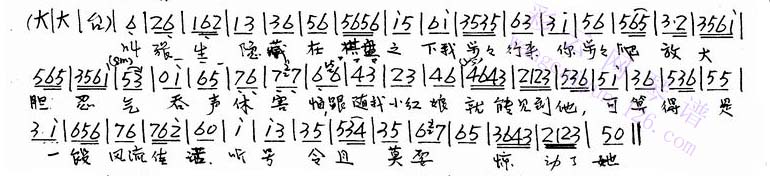 (大|大|台)|6|26|162|13|36|56|5656|i5|6i|3535|63|3i|56|565|3·2|356i|
叫张生隐藏在棋盘之下我步步行来你步步爬放大
565|356i|53|0i|65|76|7 7|66|43|23|46|4643|2123|536|5i|36|536|55|
胆忍气吞声休害怕,跟随我小红娘就能见到他,可算得是
3·i|656|76|762|60|i|i3|35|534|35|67|65|3643|2123|50||
一段风流佳话.听号令且莫要惊动了她